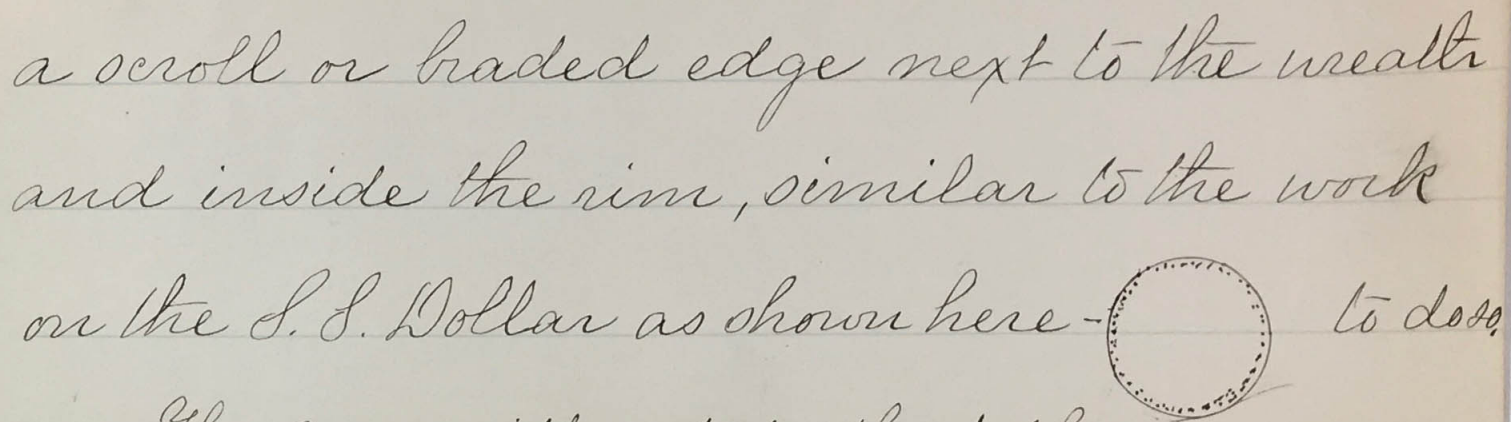 a scroll or braded edge next to the wreath
and inside the rim, similar to the work
on the S. S. Dollar as shown here - to do so.